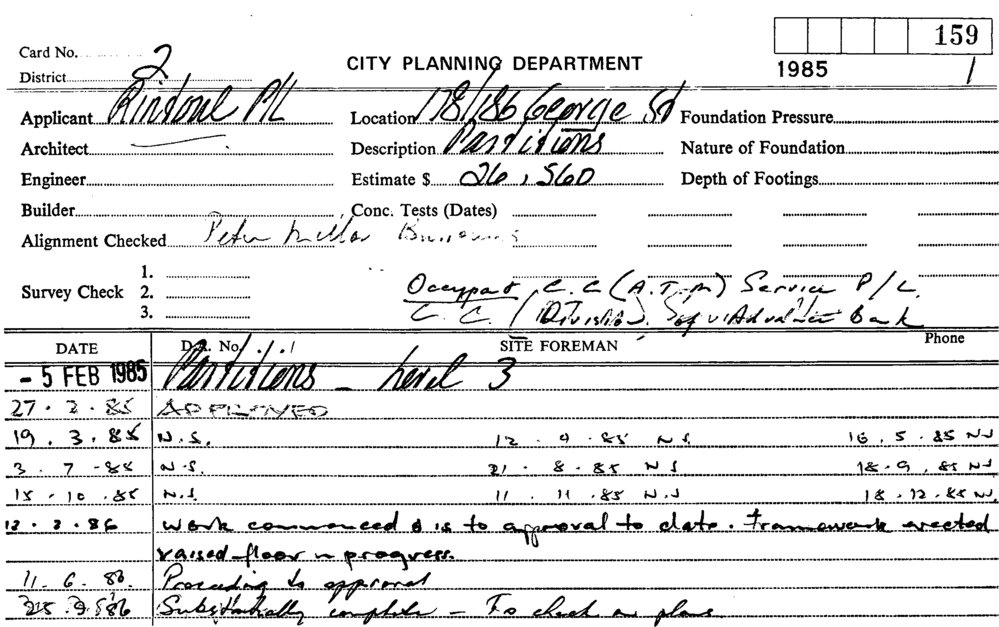 159
Card No. 2
CITY PLANNING DEPARTMENT
1985 1
District
Applicant P/L Location 178/186 George St Foundation Pressure
Architect Description Partitions Nature of Foundation
Engineer Estimate $ 26,560 Depth of Footings
Builder Conc. Tests (Dates)
Alignment Checked Peter
1.
Survey Check 2. Occupant C.C (A.T.M) Service P/L.
3. C.C. (Division) Bank
DATE D.A. No. SITE FOREMAN Phone
- 5 FEB 1985 Partitions - Level 3
27 . 2 . 85 APPROVED
19 . 3 . 85 N.S. 12 . 4 . 85 N.S. 16 . 5 . 85 NS
3 . 7 . 85 N.S. 21 . 8 . 85 N S 18 . 9 . 85 NS
15 . 10 . 85 N.S. 11 . 11 . 85 N.S 18 . 12 . 85 NS.
12 . 2 . 86 Work commenced & is to approval to date. Framework erected
raised floor in progress.
11 . 6 . 86. Proceeding to approval
Substantially complete - To check on plans